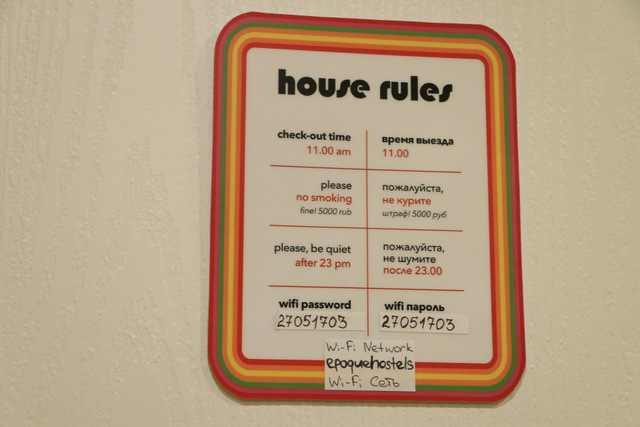 house rules
check-out time
11.00 am
время выезда
11.00
please
no smoking
fine! 5000 rub
пожалуйста,
не курите
штраф! 5000 руб
please, be quiet
after 23 pm
пожалуйста,
не шумите
после 23.00
wifi password
27051703
wifi пароль
27051703
Wi-Fi Network
epoquehostels
Wi-Fi Сеть